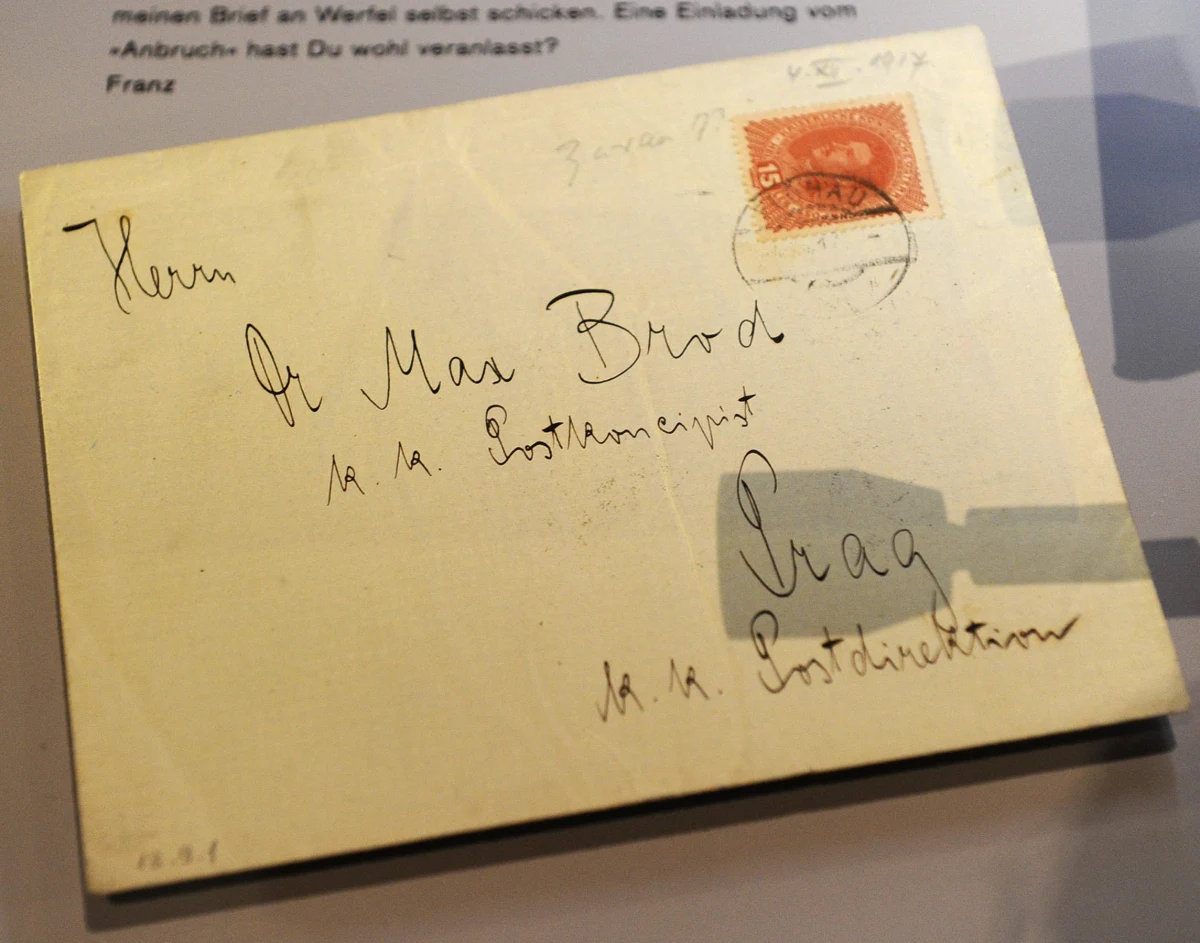 meinen Brief an Werfel selbst schicken. Eine Einladung vom
»Anbruch« hast Du wohl veranlasst?
Franz
4. XI. 1917
Zürau
15
HAU
Herrn
Dr Max Brod
k. k. Postkoncipist
Prag
k. k. Postdirektion
12.9.1